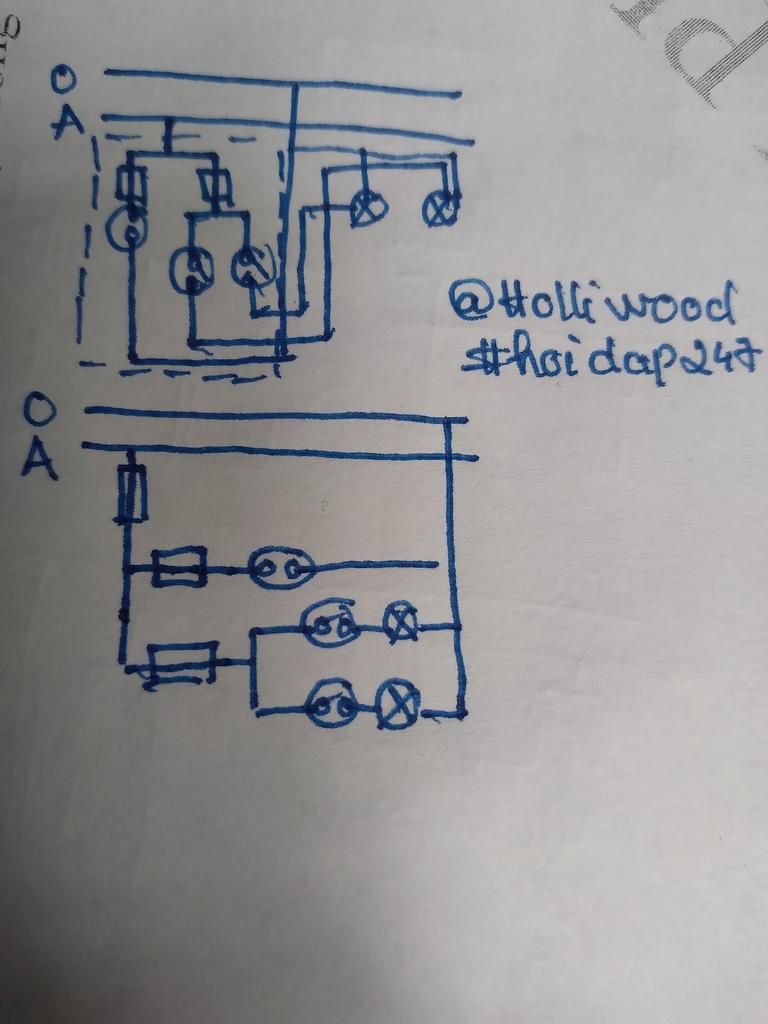 O
A
@Holliwood
#hoidap247
O
A